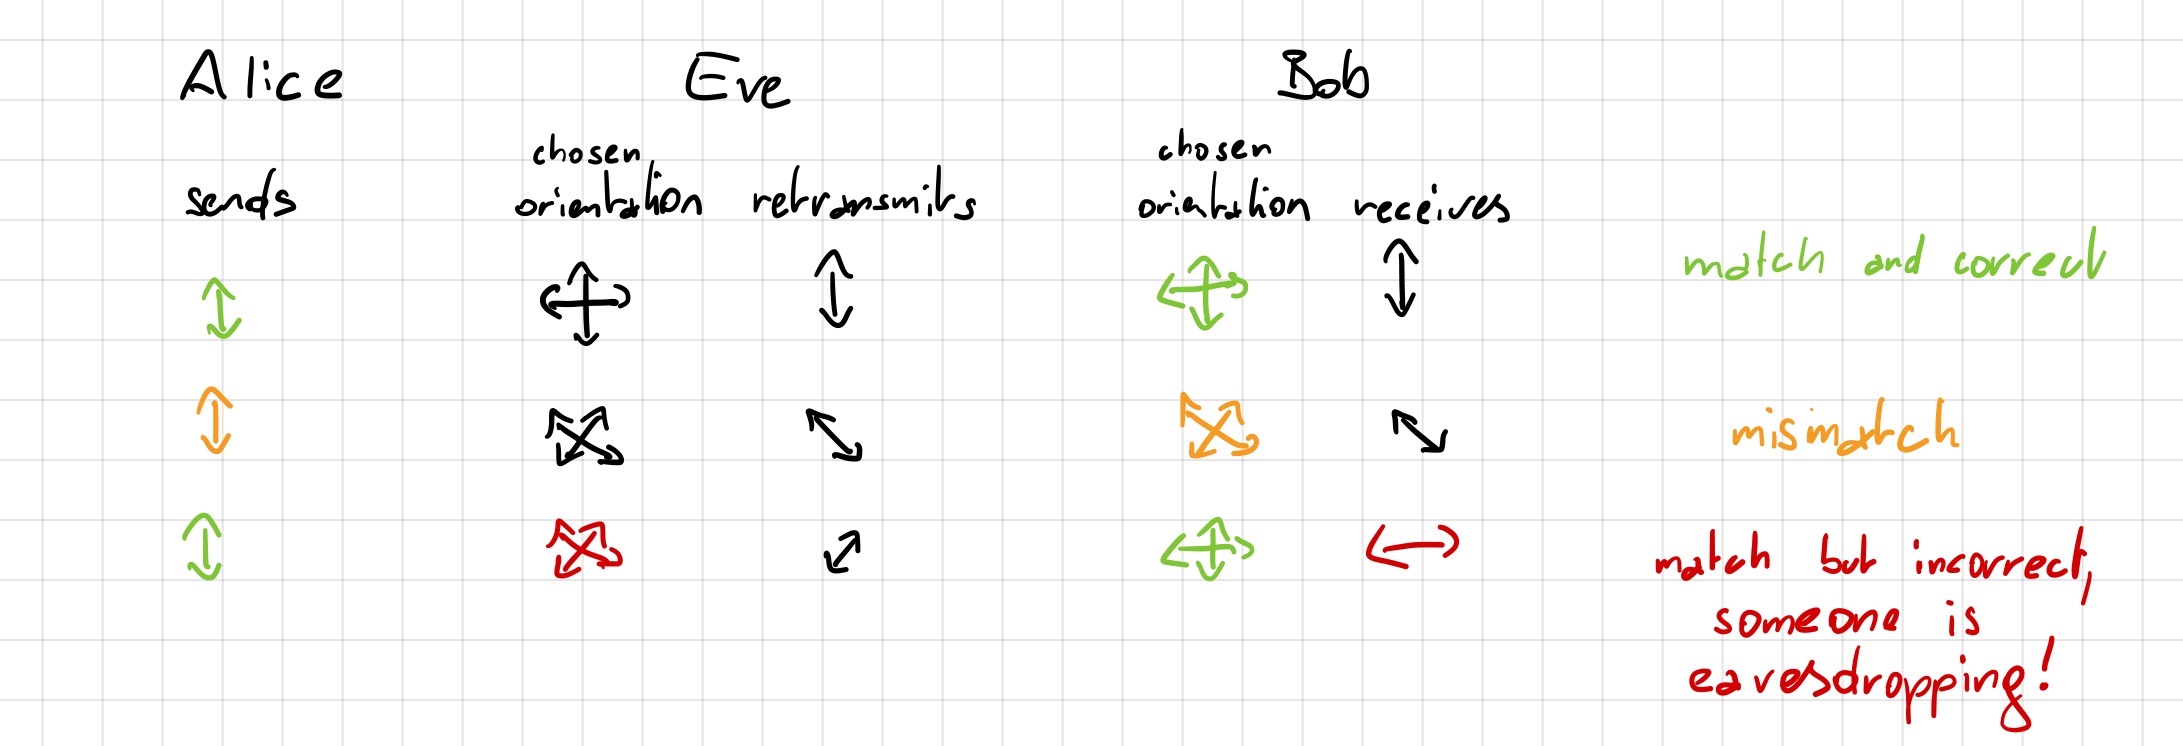 Alice Eve Bob
chosen chosen
sends orientation retransmits orientation receives
match and correct
mismatch
match but incorrect,
someone is
eavesdropping!